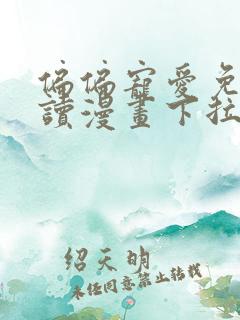 偏偏寵愛免
讀漫畫下拉
紹天明
未经同意禁止转载